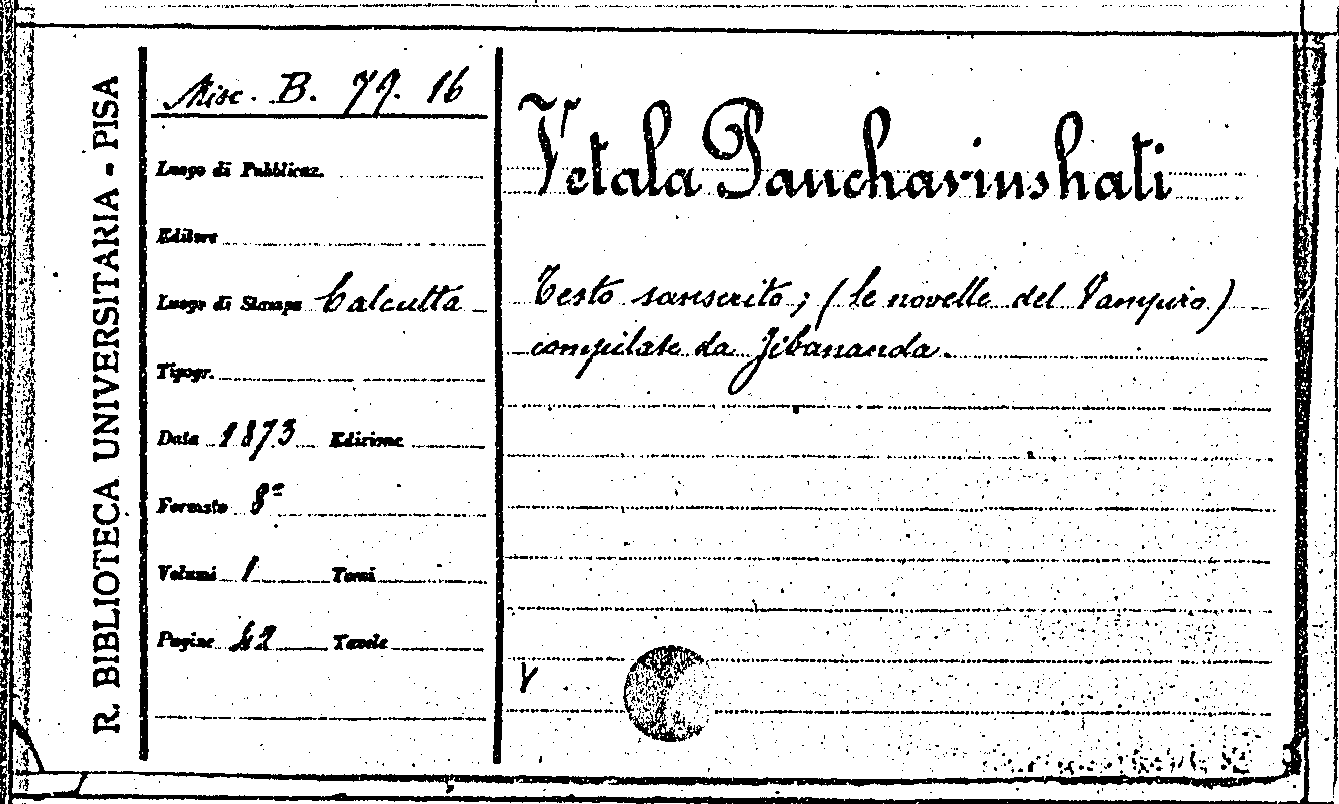 R. BIBLIOTECA UNIVERSITARIA - PISA
Misc. B. 79. 16
Luogo di Pubblicaz.
Editore
Luogo di Stampa Calcutta
Tipogr.
Data 1873 Edizione
Formato 8°
Volumi 1 Tomi
Pagine 42 Tavole
Vetala Panchavinshati
Testo sanscrito; (le novelle del Vampiro)
compilate da Jibananda.
V